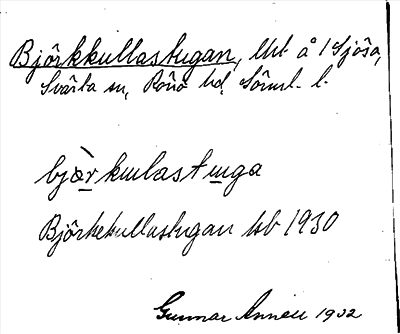 Björkkullastugan, lht å 1 Sjösa,
Svärta sn, Rönö hd, Söml. l.
bjæ̀r kullastuga
Björkekullastugan hb 1930
Gunnar Annell 1932